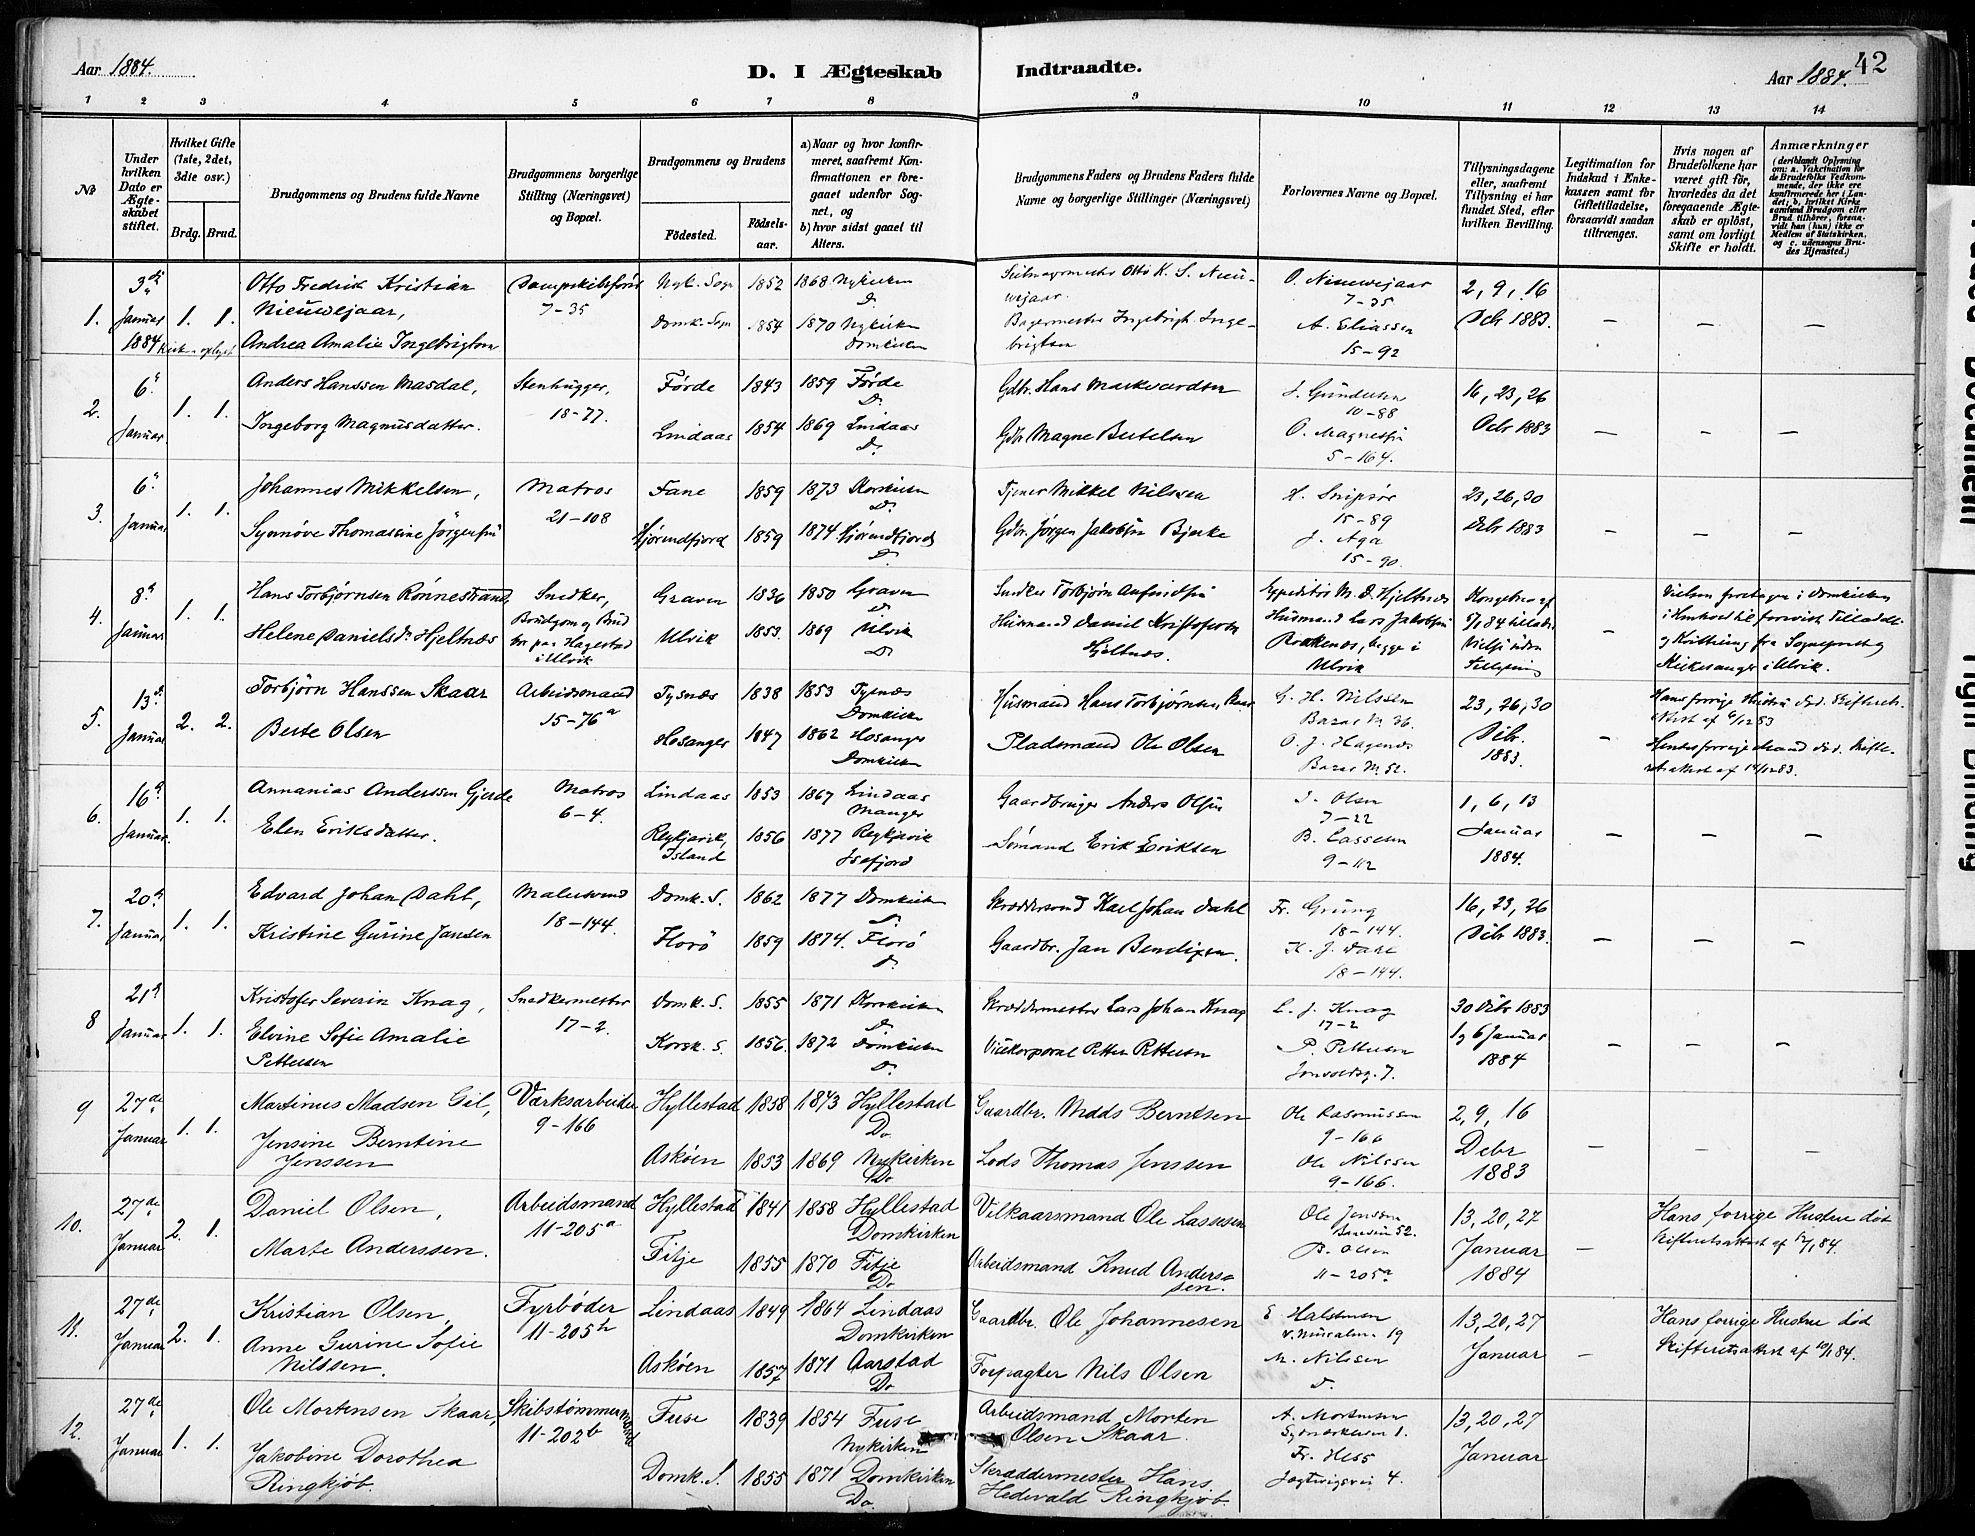 Aar 1884.
D. I Ægteskab
Indtraadte.
Aar 1884.
42
1 2 3 4 5 6 7 8 9 10 11 12 13 14
No
Under hvilken Dato er Ægteskabet stiftet.
Hvilket Gifte (1ste, 2det, 3die osv.)
Brdg. Brud.
Brudgommens og Brudens fulde Navne
Brudgommens borgerlige Stilling (Næringsvei) og Bopæl.
Brudgommens og Brudens
Födested.
Födsels-aar.
a) Naar og hvor konfirmeret, saafremt Konfirmationen er foregaaet udenfor Sognet, og
b) hvor sidst gaaet til Alters.
Brudgommens Faders og Brudens Faders fulde Navne og borgerlige Stillinger (Næringsvei)
Forlovernes Navne og Bopæl.
Tillysningsdagene eller, saafremt Tillysning ei har fundet Sted, efter hvilken Bevilling.
Legitimation for Indskud i Enkekassen samt for Giftetilladelse, forsaavidt saadan tiltrænges.
Hvis nogen af Brudefolkene har været gift før, hvorledes da det foregaaende Ægteskab er oplöst, samt om lovligt Skifte er holdt.
Anmærkninger
(deriblandt Oplysning om: a. Vakcination for de Brudefolks Vedkommende, der ikke ere konfirmerede her i Landet; b. hvilket Kirkesamfund Brudgom eller Brud tilhörer, forsaavidt han (hun) ikke er Medlem af Statskirken, og c. udensogns Brudes Hjemsted.)
1. 3die Januar 1884 1. 1. Otto Fredrik Kristian Nieuwejaar, 7-35 Nyk. Sogn 1852 1868 Nykirken D. O. Nieuwejaar 7-35 2, 9, 16 Debr 1883. — — —
Andrea Amalie Ingebrigtsen Domk. Sogn 1854 1870 Nykirken Domkirken Bagermester Ingebrigt Ingebrigtsen A. Eliassen 15-92
2. 6te Januar 1. 1. Anders Hanssen Masdal, Stenhugger, 18-77. Førde 1843 1859 Førde D. Gdbr. Hans Markvardsen J. Gundersen 10-88 16, 23, 26 Debr 1883 — — —
Ingeborg Magnusdatter. Lindaas 1854 1869 Lindaas D. Gdbr Magne Bertelsen O. Magnesen 5-164.
3. 6te Januar. 1. 1. Johannes Mikkelsen, Matros 21-108 Fane 1859 1873 Korskirken D. Tjener Mikkel Nilssen 15-89 23, 26, 30 Debr 1883 — — —
Synnøve Thomassine Jörgensen Hjørundfjord 1859 1874 Hjørundfjord D. Gdbr. Jørgen Jakobsen Bjerke J. Aga 15-90.
4. 8de Januar 1. 1. Hans Torbjørnsen Rönnestrand, Snedker, Graven 1836 1850 Graven D. Snedker Torbjørn Expeditör M. D. Hjeltnæs
Helene Danielsdr Hjeltnæs Brudgom og Brud bor paa Hagestad i Ulvik Ulvik 1853. 1869 Ulvik D. Husmand Daniel Kristofersen Hjeltnæs. Husmand Lars Jakobsen begge i Ulvik —
5. 13de Januar 2. 2. Torbjörn Hanssen Skaar Arbeidsmand 15-76a Tysnæs 1838 1853 Tysnæs Domkirken Husmand Hans Torbjørnsen Skaar G. H. Nilssen Bazar No 36. 23, 26, 30 Debr. 1883. — Hans forrige Hustru död. Skifteretsattest af 6/12 83
Berte Olsen Hosanger 1847 1862 Hosanger Domkirken Pladsmand Ole Olsen O. J. Hagenæs Bazar No 52. Hendes forrige Mand död. Skifteretsattest af 14/12 83.
6. 16de Januar. 1. 1. Annanias Anderssen Gjerde Matros 6-4. Lindaas 1853 1867 Lindaas Manger Gaardbruger Anders Olsen J. Olsen 7-22 1, 6, 13 Januar 1884. — — —
Elen Eriksdatter. Reykjavik, Island 1856 1877 Reykjavik Isafjord Sømand Erik Eriksen B. Lassesen 9-112
7. 20de Januar 1. 1. Edvard Johan Dahl, Malersvend 18-144. Domk. S. 1862 1877 Domkirken D. Skræddersvend Karl Johan Dahl Fr. Grung 18-144. 16, 23, 26 Debr 1883. — — —
Kristine Gurine Jansen Florö 1859 1874. Florö D. Gaardbr. Jan Bendixen. K. J. Dahl 18-144.
8 21de Januar 1. 1. Kristofer Severin Knag, Snedkermester 17-2. Domk. S. 1855 1871 Korskirken D. Skræddermester Lars Johan Knag L. J. Knag 17-2 30 Debr 1883 1 og 6 Januar 1884 — — —
Elvine Sofie Amalie Pettersen Korsk. S. 1856. 1872 Domkirken D. Vicekorporal Petter Pettersen P. Pettersen
9 27de Januar 1. 1. Martinus Madsen Gil, Værksarbeider 9-166 Hyllestad 1858 1873 Hyllestad Do Gaardbr. Mads Berntsen Ole Rasmussen 9-166 2, 9, 16 Debr 1883 — — —
Jensine Berntine Jenssen Askøen 1853 1869 Nykirken Do Lods Thomas Jenssen Ole Nilssen 9-166.
10. 27de Januar 2. 1. Daniel Olsen, Arbeidsmand 11-205a Hyllestad 1841 1858 Hyllestad Domkirken Vilkaarsmand Ole Lassesen Ole Jenssen 52. 13, 20, 27 Januar 1884 — Hans forrige Hustru död Skifteretsattest af 12/1 84.
Marte Anderssen. Fitje 1855 1870 Fitje Do Arbeidsmand Knud Anderssen. B. Olsen 11-205a
11. 27de Januar 2. 1. Kristian Olsen, Fyrbøder 11-205b Lindaas 1849 1864 Lindaas Domkirken Gaardbr. Ole Johannesen E Halstensen 19 13, 20, 27 Januar — Hans forrige Hustru död Skifteretsattest af 10/1 84.
Anne Gurine Sofie Nilssen. Askøen 1857 1871 Aarstad Do Forpagter Nils Olsen M. Nilssen D.
12. 27de Januar 1. 1. Ole Mortensen Skaar, Skibstømmermand 11-202b Fuse 1839 1854 Fuse Nykirken Arbeidsmand Morten Olsen Skaar. A. Mortensen 13, 20, 27 Januar
Jakobine Dorothea Ringkjöb. Domk. S. 1855 1871 Domkirken Do. Skræddermester Hans Hedevald Ringkjöb. Fr. Hess 4.